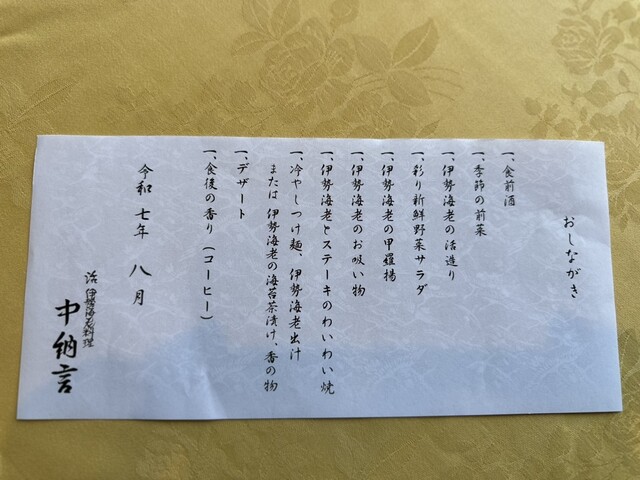 おしながき
一、食前酒
一、季節の前菜
一、伊勢海老の活造り
一、彩り新鮮野菜サラダ
一、伊勢海老の甲羅揚
一、伊勢海老のお吸い物
一、伊勢海老とステーキのわいわい焼
一、冷やしつけ麺、伊勢海老出汁
または 伊勢海老の海苔茶漬け、香の物
一、デザート
一、食後の香り（コーヒー）
令和 七年 八月
活 伊勢海老料理
中納言